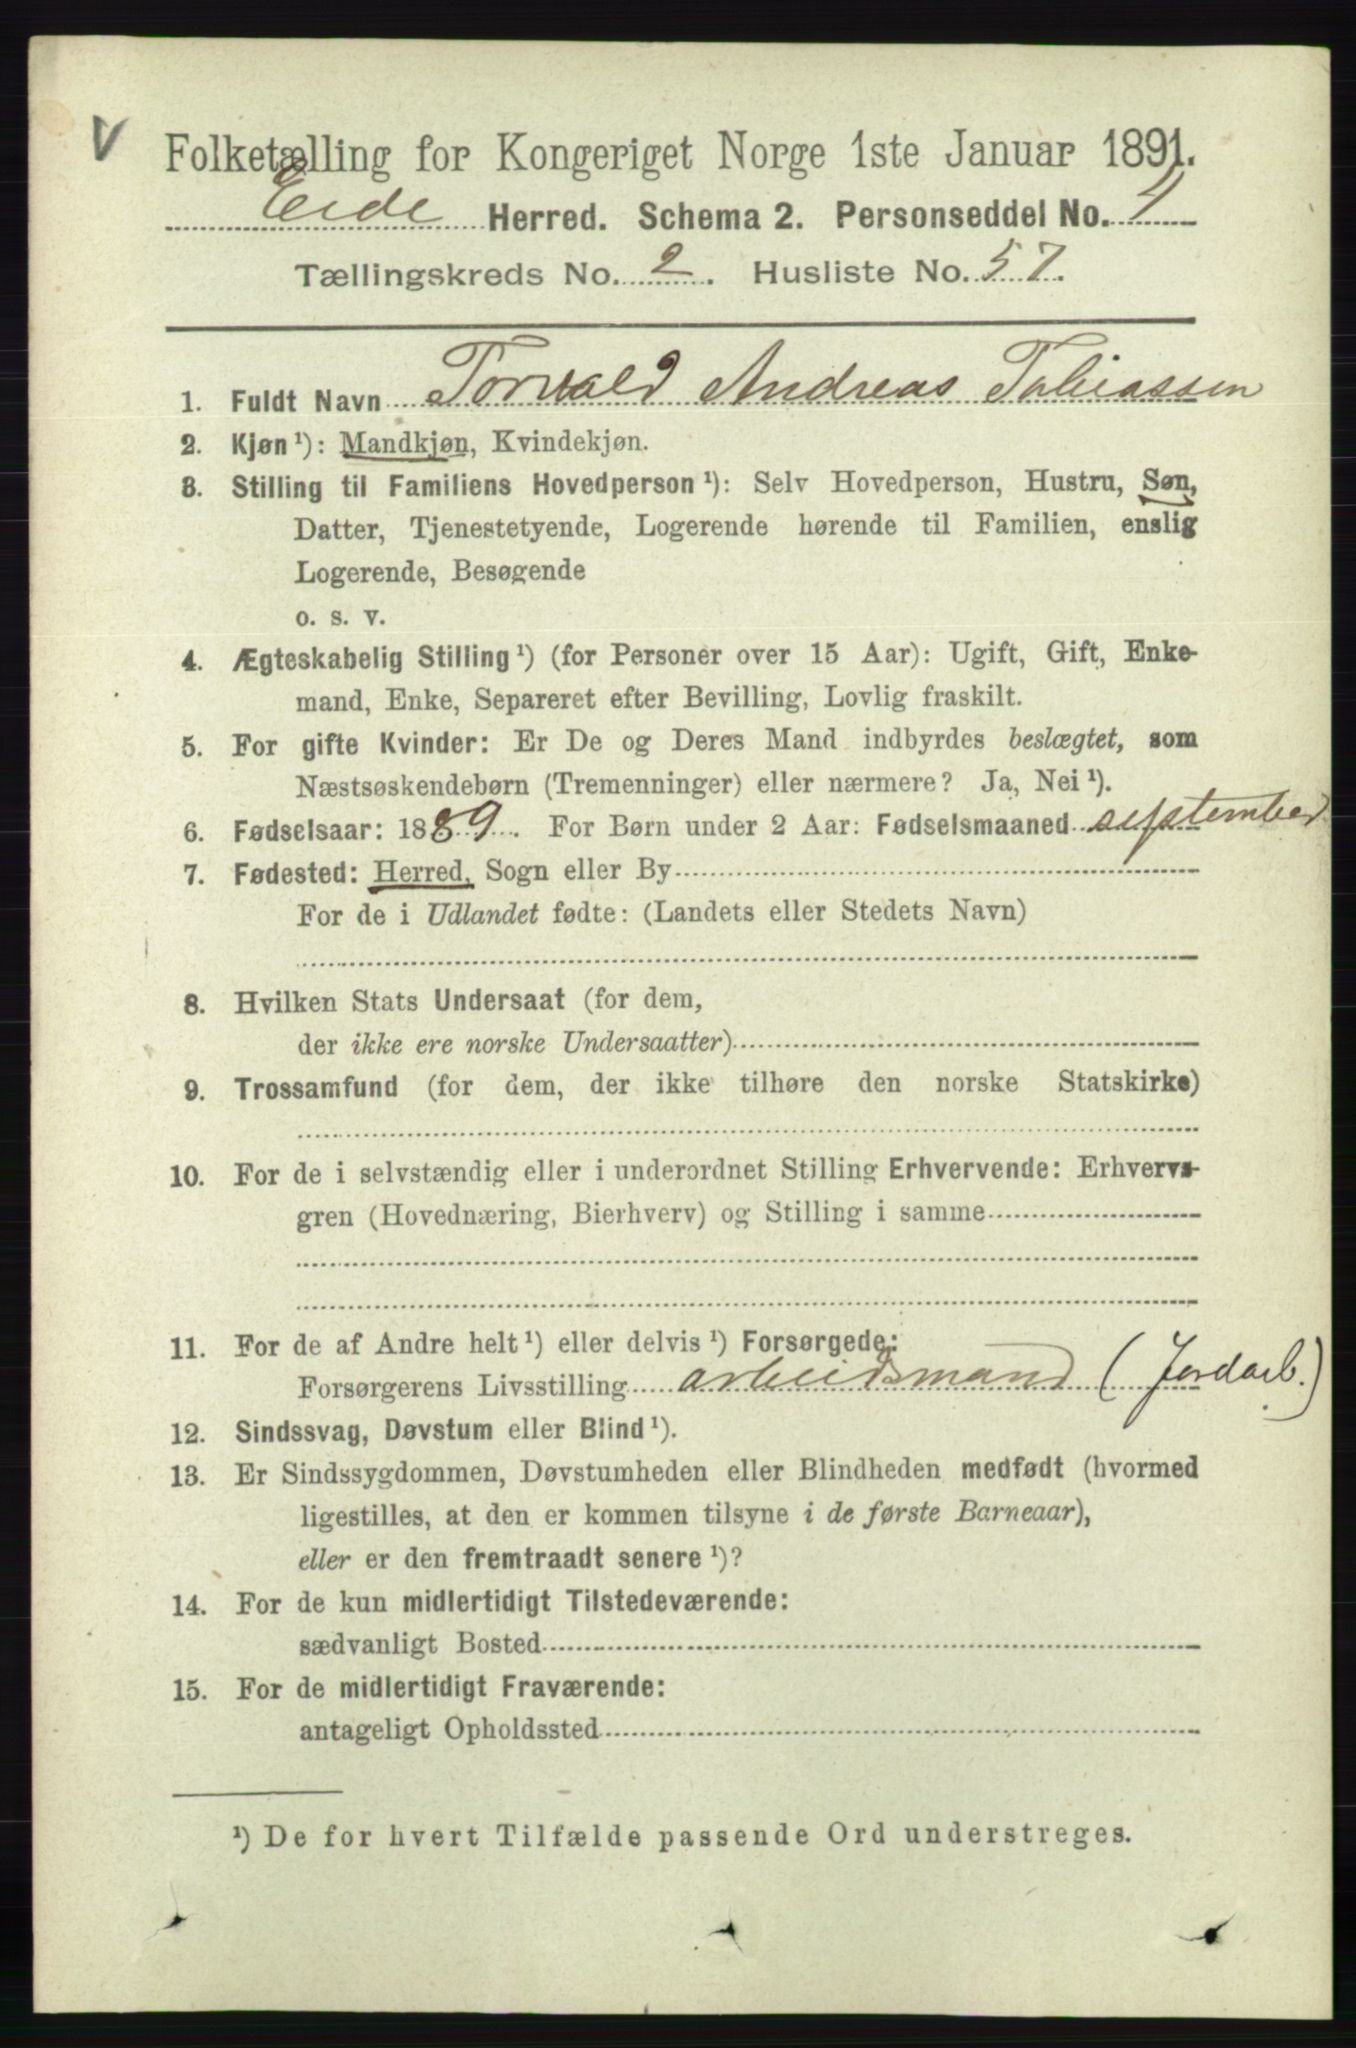 V
Folketælling for Kongeriget Norge 1ste Januar 1891.
Eide Herred. Schema 2. Personseddel No. 4
Tællingskreds No. 2. Husliste No. 57.
1. Fuldt Navn Torvald Andreas Tobiassen
2. Kjøn¹): Mandkjøn, Kvindekjøn.
3. Stilling til Familiens Hovedperson¹): Selv Hovedperson, Hustru, Søn,
Datter, Tjenestetyende, Logerende hørende til Familien, enslig
Logerende, Besøgende
o. s. v.
4. Ægteskabelig Stilling¹) (for Personer over 15 Aar): Ugift, Gift, Enke-
mand, Enke, Separeret efter Bevilling, Lovlig fraskilt.
5. For gifte Kvinder: Er De og Deres Mand indbyrdes beslægtet, som
Næstsøskendebørn (Tremenninger) eller nærmere? Ja, Nei¹).
6. Fødselsaar: 1889. For Børn under 2 Aar: Fødselsmaaned september
7. Fødested: Herred, Sogn eller By
For de i Udlandet fødte: (Landets eller Stedets Navn)
8. Hvilken Stats Undersaat (for dem,
der ikke ere norske Undersaatter)
9. Trossamfund (for dem, der ikke tilhøre den norske Statskirke)
10. For de i selvstændig eller i underordnet Stilling Erhvervende: Erhvervs-
gren (Hovednæring, Bierhverv) og Stilling i samme
11. For de af Andre helt¹) eller delvis¹) Forsørgede:
Forsørgerens Livsstilling arbeidsmand (Jordarb.)
12. Sindssvag, Døvstum eller Blind¹).
13. Er Sindssygdommen, Døvstumheden eller Blindheden medfødt (hvormed
ligestilles, at den er kommen tilsyne i de første Barneaar),
eller er den fremtraadt senere¹)?
14. For de kun midlertidigt Tilstedeværende:
sædvanligt Bosted
15. For de midlertidigt Fraværende:
antageligt Opholdssted
¹) De for hvert Tilfælde passende Ord understreges.